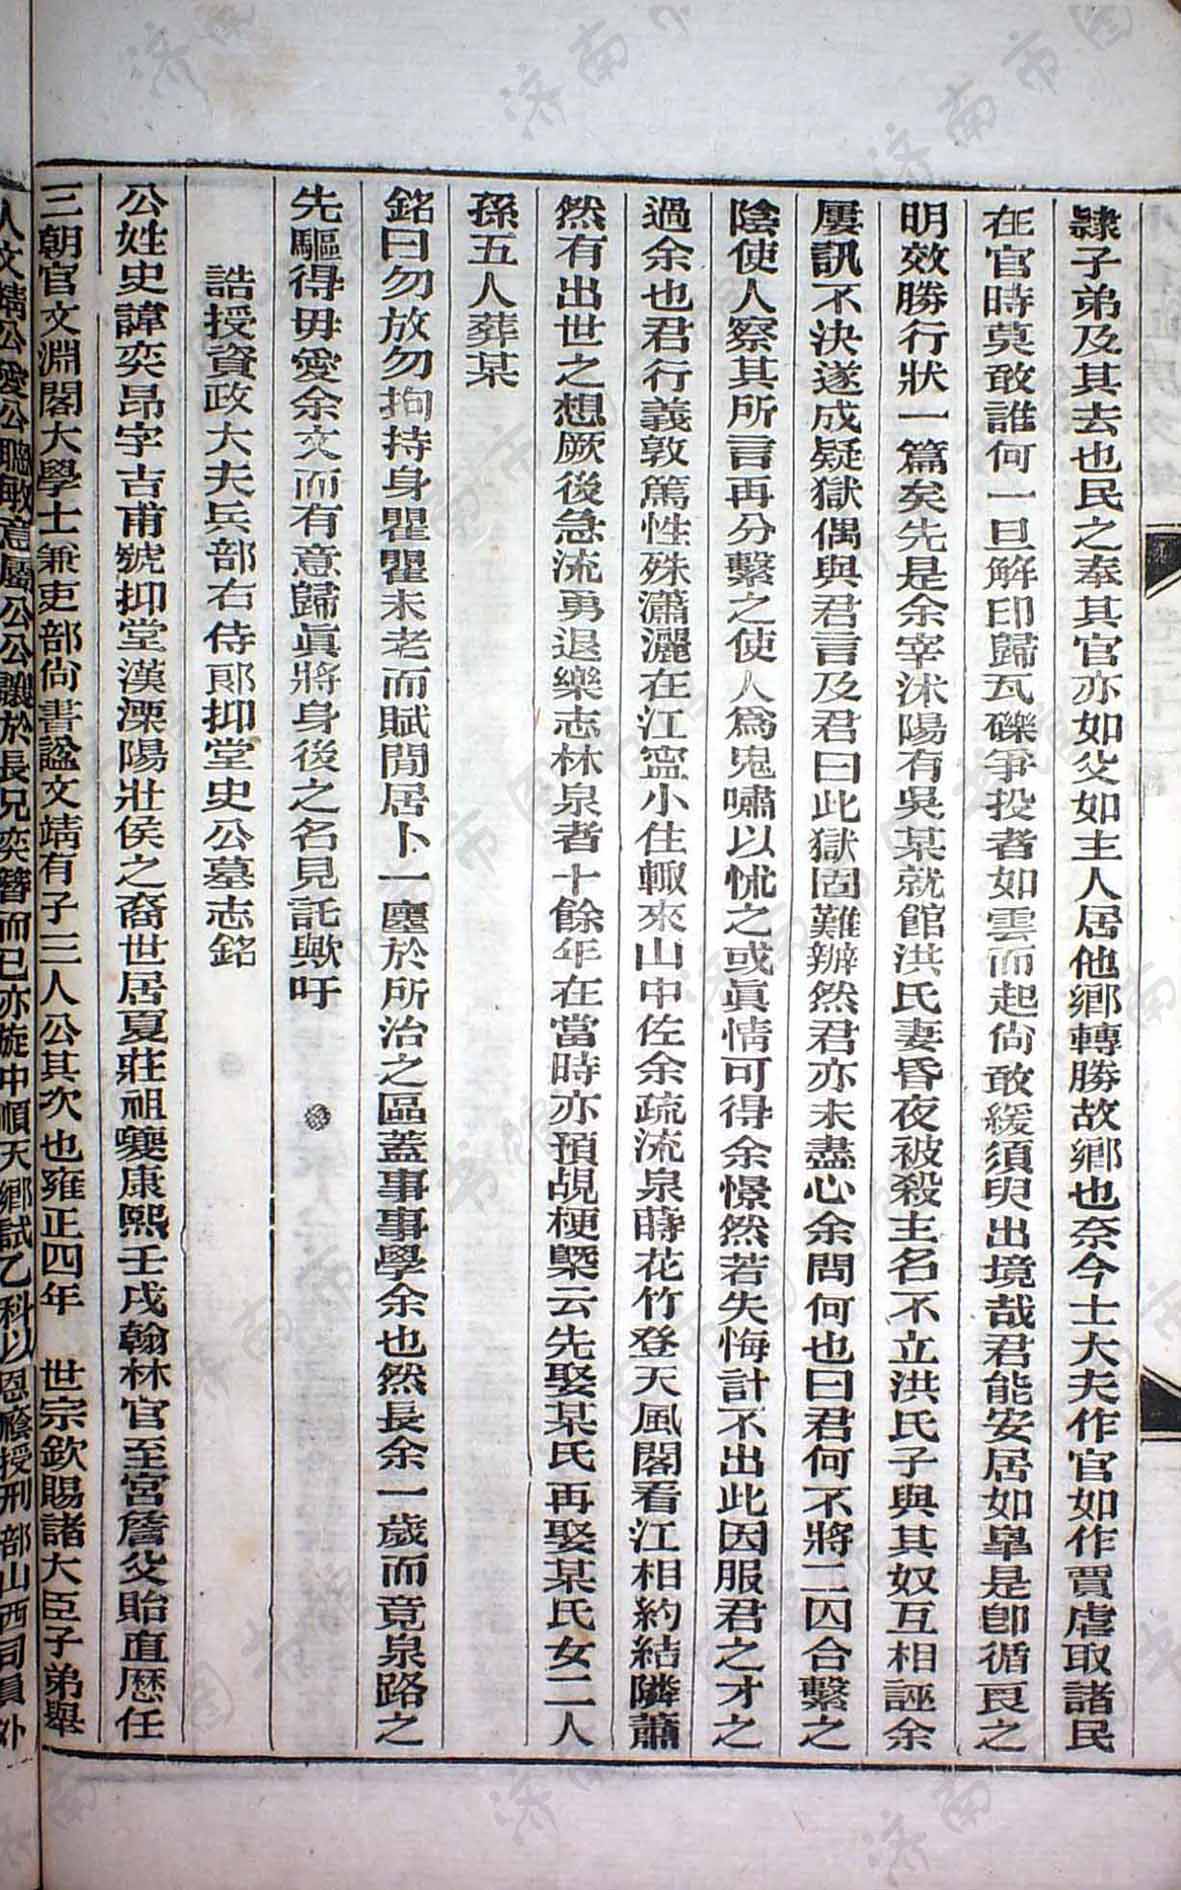 隸子弟及其去也民之奉其官亦如父如主人居他鄉轉勝故鄉也奈今士大夫作官如作賈虐取諸民
在官時莫敢誰何一旦解印歸瓦礫爭投者如雲而起尙敢緩須臾出境哉君能安居如臯是卽循良之
明效勝行狀一篇矣先是余宰沭陽有吳某就館洪氏妻昏夜被殺主名不立洪氏子與其奴互相誣余
屢訊不決遂成疑獄偶與君言及君曰此獄固難辦然君亦未盡心余問何也曰君何不將二囚合繫之
陰使人察其所言再分繫之使人爲鬼嘯以怵之或眞情可得余憬然若失悔計不出此因服君之才之
過余也君行義敦篤性殊瀟灑在江寧小住輙來山中佐余疏流泉蒔花竹登天風閣看江相約結隣蕭
然有出世之想厥後急流勇退樂志林泉者十餘年在當時亦預覘梗槩云先娶某氏再娶某氏女二人
孫五人葬某
銘曰勿放勿拘持身瞿瞿未老而賦閒居卜一廛於所治之區蓋事事學余也然長余一歲而竟泉路之
先驅得毋愛余文而有意歸眞將身後之名見託歟吁
誥授資政大夫兵部右侍郞抑堂史公墓志銘
公姓史諱奕昂字吉甫號抑堂漢溧陽壯侯之裔世居夏莊祖夔康熙壬戌翰林官至宮詹父貽直歷任
三朝官文淵閣大學士兼吏部尙書諡文靖有子三人公其次也雍正四年 世宗欽賜諸大臣子弟舉
人文靖公愛公聰敏意屬公公讓於長兄奕簪而已亦旋中順天鄉試乙科以恩廕授刑部山西司員外